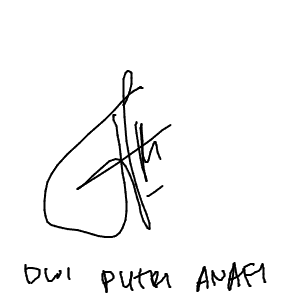 DWI PUTRI ANAFI